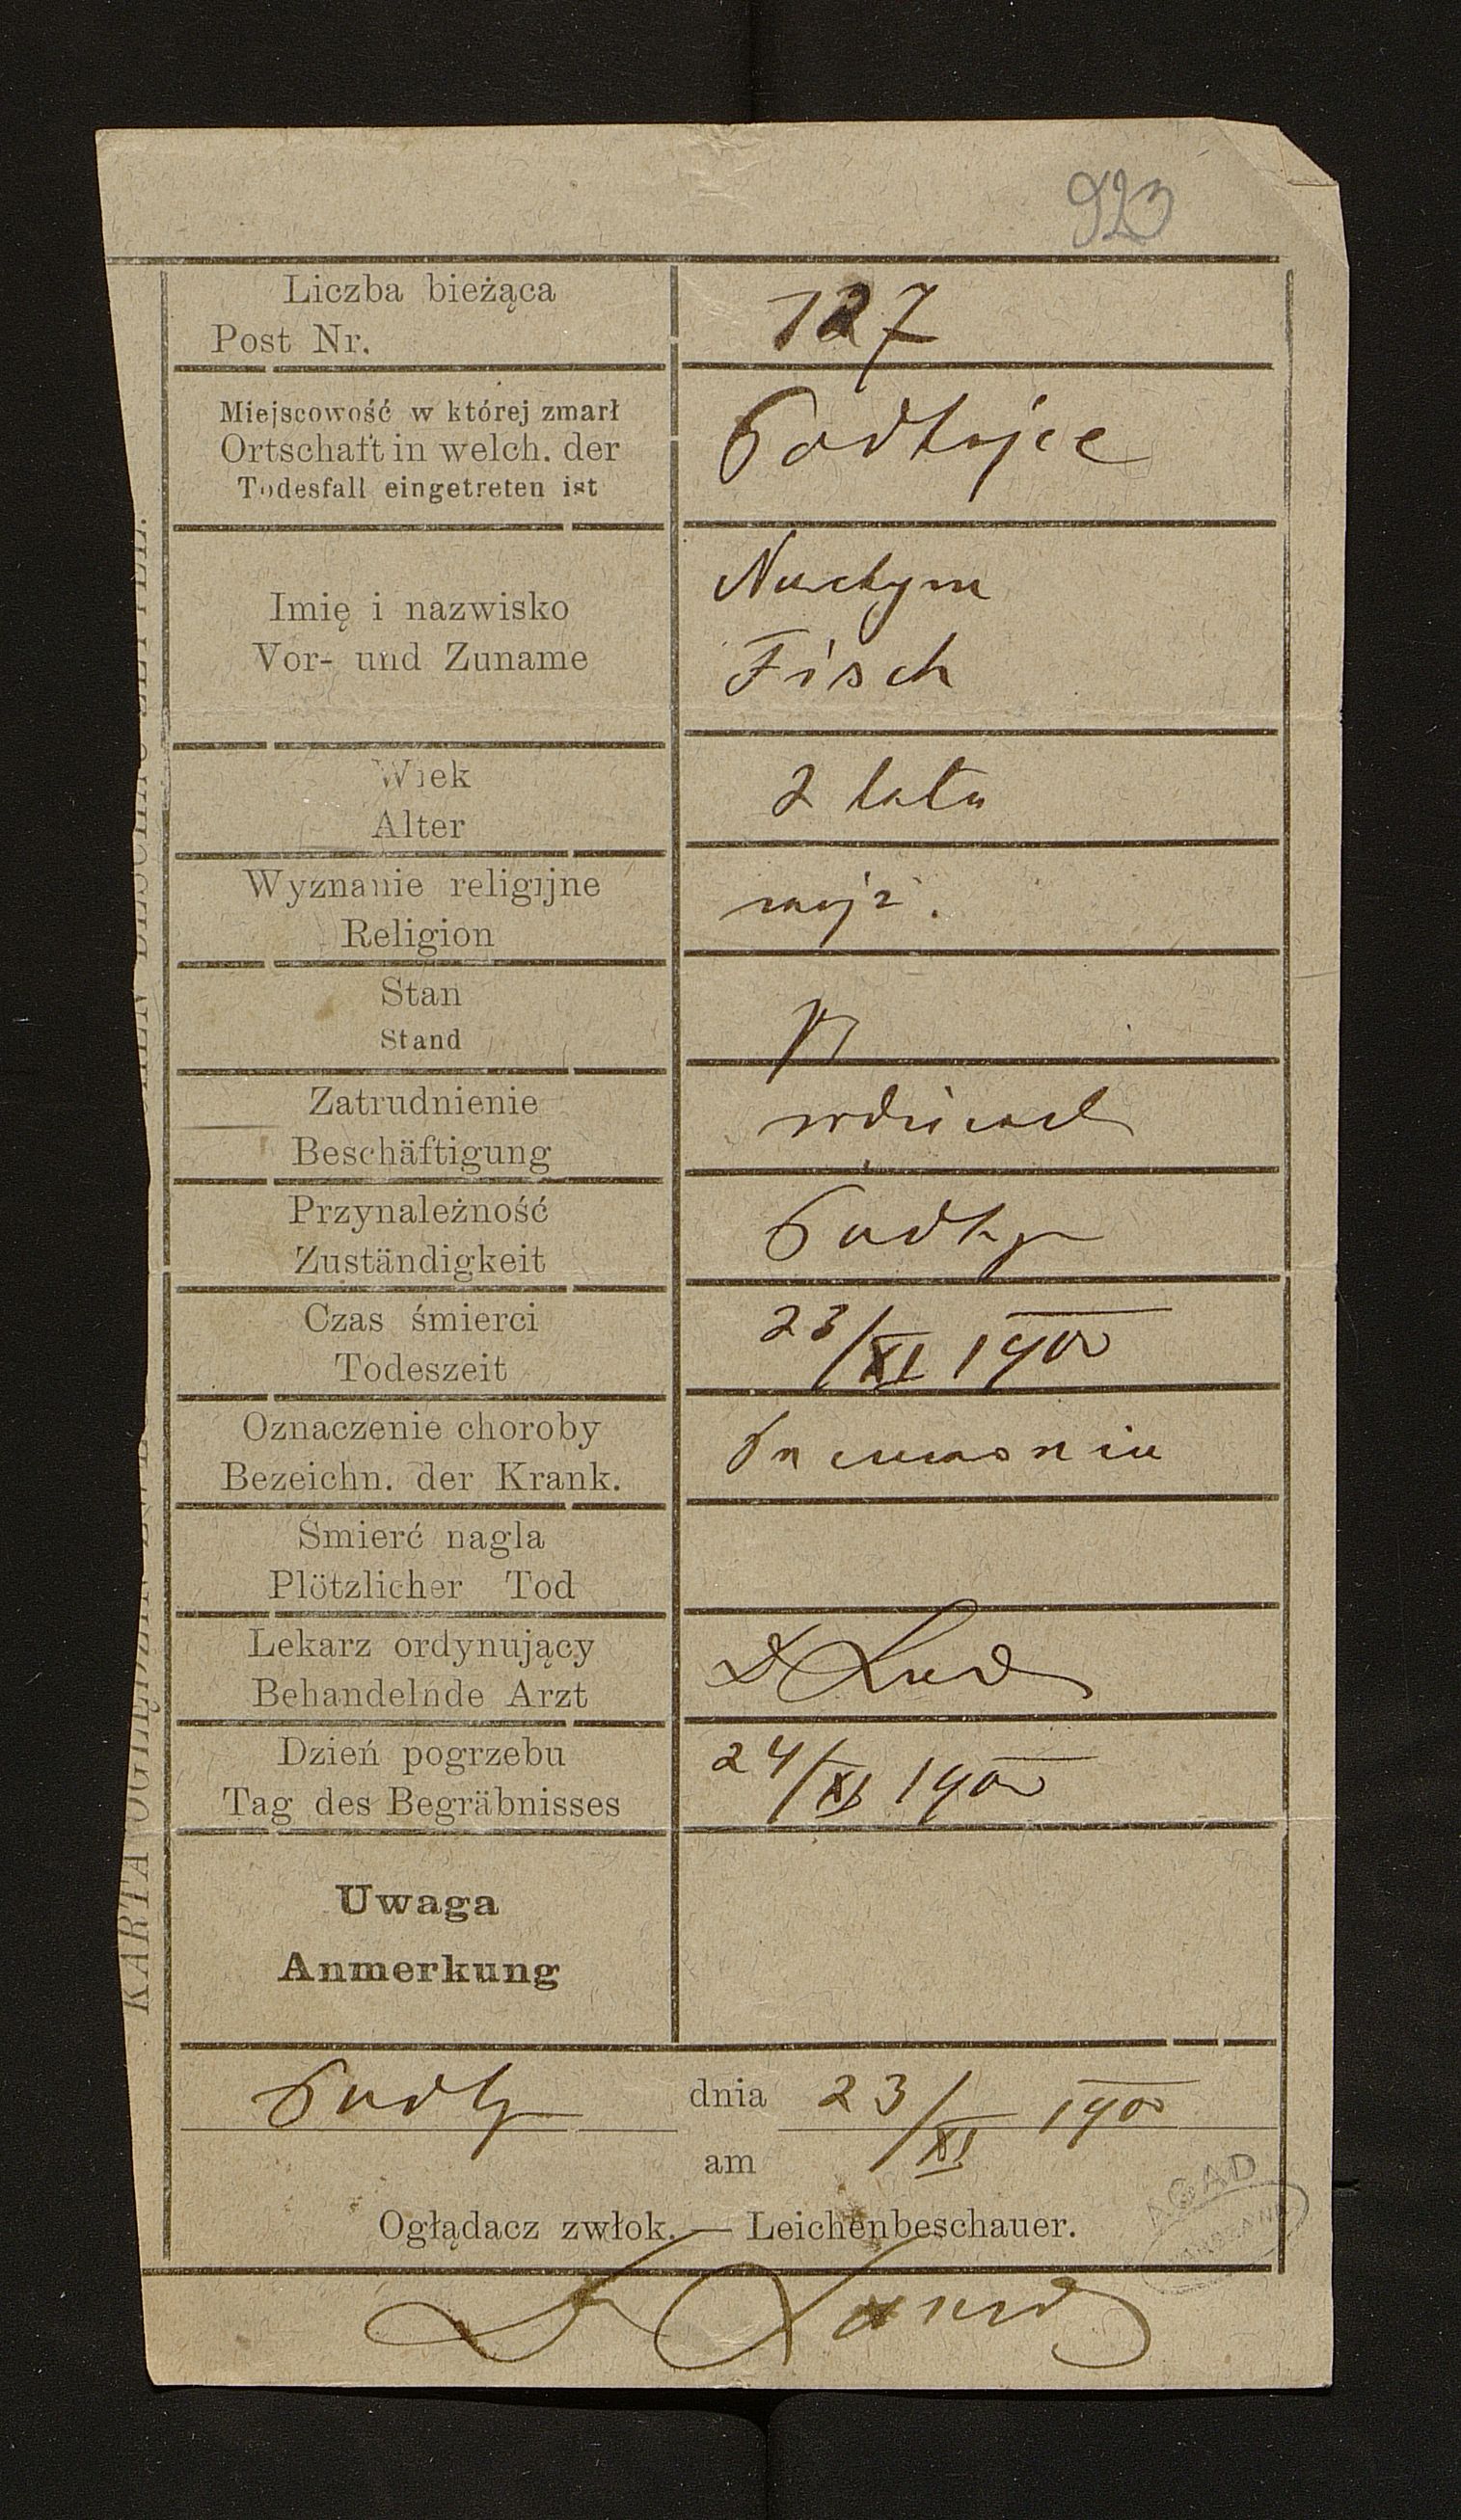 923
Liczba bieżąca
Post Nr.
127
Miejscowość w której zmarł
Ortschaft in welch. der
Todesfall eingetreten ist
Podhajce
Imię i nazwisko
Vor- und Zuname
Nuchym
Fisch
Wiek
Alter
2 lata
Wyznanie religijne
Religion
mojż.
Stan
Stand
Zatrudnienie
Beschäftigung
Przynależność
Zuständigkeit
Podhj
Czas śmierci
Todeszeit
23/XI 1900
Oznaczenie choroby
Bezeichn. der Krank.
Pneumonia
Śmierć nagla
Plötzlicher Tod
Lekarz ordynujący
Behandelnde Arzt
Dzień pogrzebu
Tag des Begräbnisses
24/XI 1900
Uwaga
Anmerkung
Podhj dnia 23/XI 1900
am
Oglądacz zwłok. — Leichenbeschauer.
AGAD
KARTA OGLĘDZIN